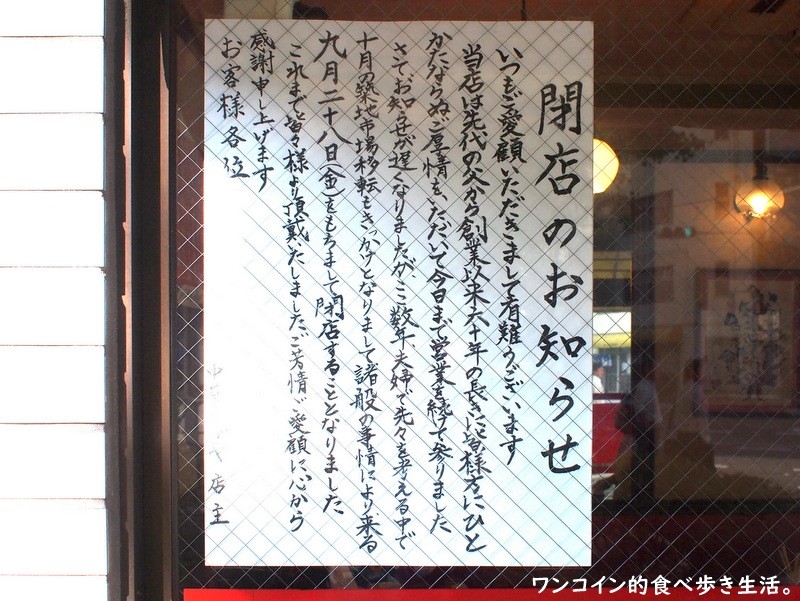 閉店のお知らせ
いつもご愛顧いただきまして有難うございます
当店は先代の父から創業以来六十年の長きに皆様方にひと
かたならぬご厚情をいただいて今日まで営業を続けて参りました
さてお知らせが遅くなりましたがここ数年、夫婦で先々を考える中で
十月の築地市場移転もきっかけとなりまして諸般の事情により来る
九月二十八日(金)をもちまして閉店することとなりました
これまで皆々様より頂戴いたしましたご芳情ご愛顧に心から
感謝申し上げます
お客様各位
店主
ワンコイン的食べ歩き生活。